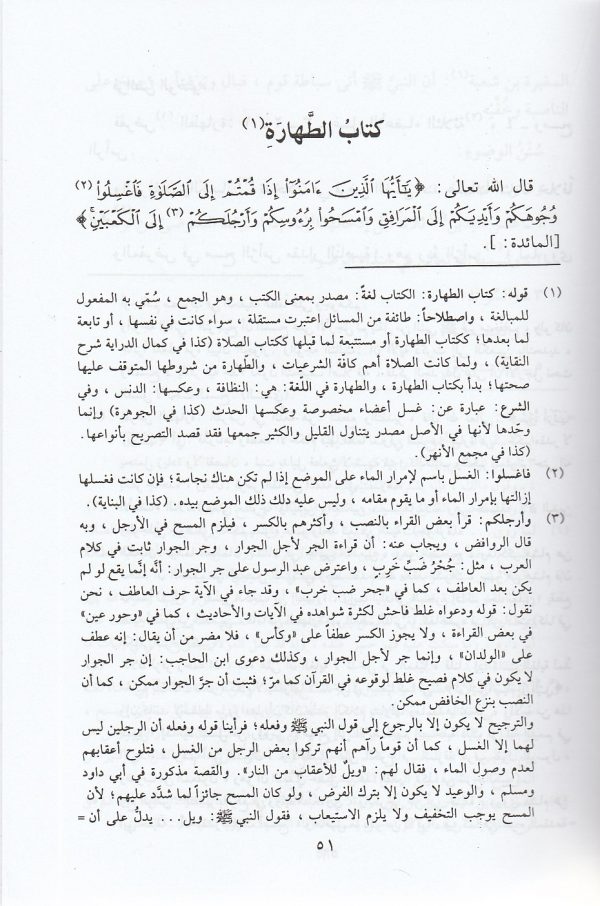 كتابُ الطَّهارَةِ(١)
قال الله تعالى: ﴿يَٰٓأَيُّهَا ٱلَّذِينَ ءَامَنُوٓا۟ إِذَا قُمْتُمْ إِلَى ٱلصَّلَوٰةِ فَٱغْسِلُوا۟(٢)
وُجُوهَكُمْ وَأَيْدِيَكُمْ إِلَى ٱلْمَرَافِقِ وَٱمْسَحُوا۟ بِرُءُوسِكُمْ وَأَرْجُلَكُمْ(٣) إِلَى ٱلْكَعْبَيْنِ﴾
[المائدة: ].
(١) قوله: كتاب الطهارة: الكتاب لغةً: مصدر بمعنى الكتب ، وهو الجمع ، سُمّي به المفعول
للمبالغة ، واصطلاحاً: طائفة من المسائل اعتبرت مستقلة ، سواء كانت في نفسها ، أو تابعة
لما بعدها؛ ككتاب الطهارة أو مستتبعة لما قبلها ككتاب الصلاة (كذا في كمال الدراية شرح
النقاية) ، ولما كانت الصلاة أهم كافّة الشرعيات ، والطّهارة من شروطها المتوقف عليها
صحتها؛ بدأ بكتاب الطهارة ، والطهارة في اللّغة: هي: النظافة ، وعكسها: الدنس ، وفي
الشرع: عبارة عن: غسل أعضاء مخصوصة وعكسها الحدث (كذا في الجوهرة) وإنما
وحّدها لأنها في الأصل مصدر يتناول القليل والكثير جمعها فقد قصد التصريح بأنواعها.
(كذا في مجمع الأنهر).
(٢) فاغسلوا: الغسل باسم لإمرار الماء على الموضع إذا لم تكن هناك نجاسة؛ فإن كانت فغسلها
إزالتها بإمرار الماء أو ما يقوم مقامه ، وليس عليه دلك ذلك الموضع بيده. (كذا في البناية).
(٣) وأرجلكم: قرأ بعض القراء بالنصب ، وأكثرهم بالكسر ، فيلزم المسح في الأرجل ، وبه
قال الروافض ، ويجاب عنه: أن قراءة الجر لأجل الجوار ، وجر الجوار ثابت في كلام
العرب ، مثل: جُحْرُ ضَبٍّ خَرِبٍ ، واعترض عبد الرسول على جر الجوار: أنَّه إنَّما يقع لو لم
يكن بعد العاطف ، كما في «جحر ضب خرب» ، وقد جاء في الآية حرف العاطف ، نحن
نقول: قوله ودعواه غلط فاحش لكثرة شواهده في الآيات والأحاديث ، كما في «وحور عين»
في بعض القراءة ، ولا يجوز الكسر عطفاً على «وكأس» ، فلا مضر من أن يقال: إنه عطف
على «الولدان» ، وإنما جر لأجل الجوار ، وكذلك دعوى ابن الحاجب: إن جر الجوار
لا يكون في كلام فصيح غلط لوقوعه في القرآن كما مرّ؛ فثبت أن جرَّ الجوار ممكن ، كما أن
النصب بنزع الخافض ممكن.
والترجيح لا يكون إلا بالرجوع إلى قول النبي ﷺ وفعله؛ فرأينا قوله وفعله أن الرجلين ليس
لهما إلا الغسل ، كما أن قوماً رآهم أنهم تركوا بعض الرجل من الغسل ، فتلوح أعقابهم
لعدم وصول الماء ، فقال لهم: «ويلٌ للأعقاب من النار». والقصة مذكورة في أبي داود
ومسلم ، والوعيد لا يكون إلا بترك الفرض ، ولو كان المسح جائزاً لما شدَّد عليهم؛ لأن
المسح يوجب التخفيف ولا يلزم الاستيعاب ، فقول النبي ﷺ: ويل... يدلُّ على أن =
٥١